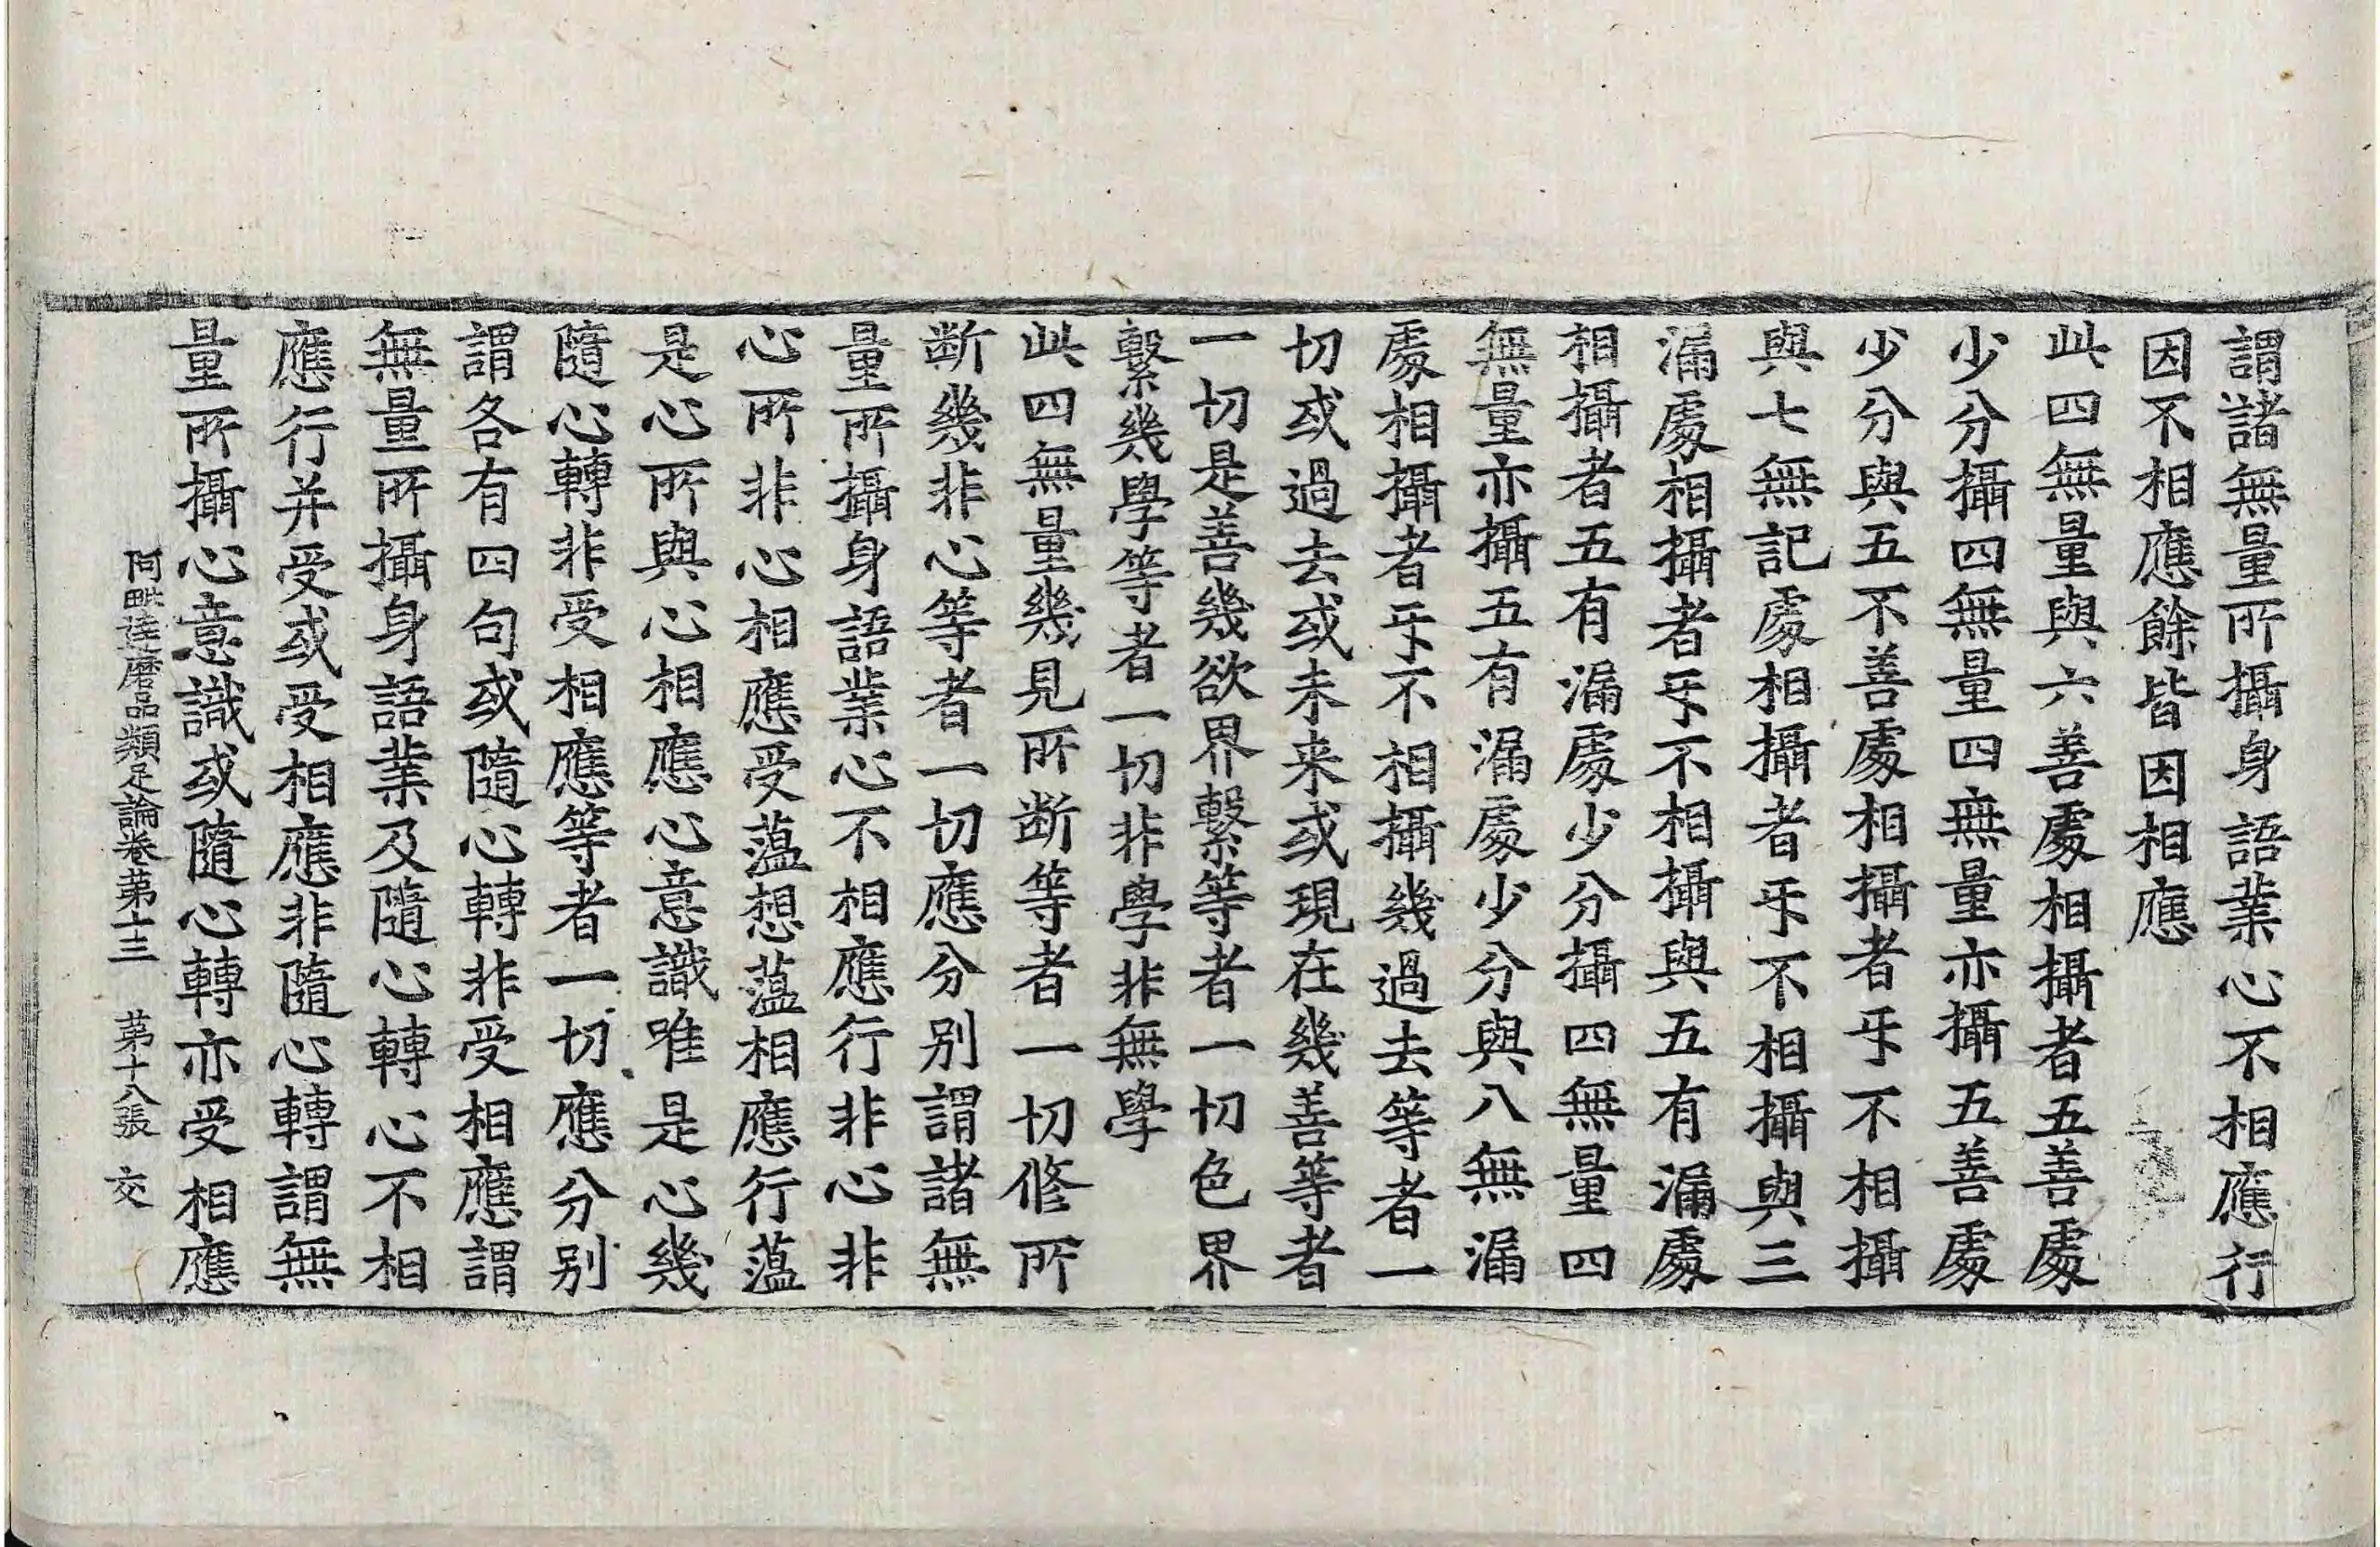 謂諸無量所攝身語業心不相應行
因不相應餘皆因相應
此四無量與六善處相攝者五善處
少分攝四無量四無量亦攝五善處
少分與五不善處相攝者乑不相攝
與七無記處相攝者乑不相攝與三
漏處相攝者乑不相攝與五有漏處
相攝者五有漏處少分攝四無量四
無量亦攝五有漏處少分與八無漏
處相攝者乑不相攝幾過去等者一
切或過去或未来或現在幾善等者
一切是善幾欲界繫等者一切色界
繫幾學等者一切非學非無學
此四無量幾見所断等者一切修所
断幾非心等者一切應分別謂諸無
量所攝身語業心不相應行非心非
心所非心相應受蕰想蕰相應行蕰
是心所與心相應心意識唯是心幾
隨心轉非受相應等者一切應分別
謂各有四句或隨心轉非受相應謂
無量所攝身語業及隨心轉心不相
應行并受或受相應非隨心轉謂無
量所攝心意識或隨心轉亦受相應
阿毗達磨品類足論卷苐十三 苐十八張 交